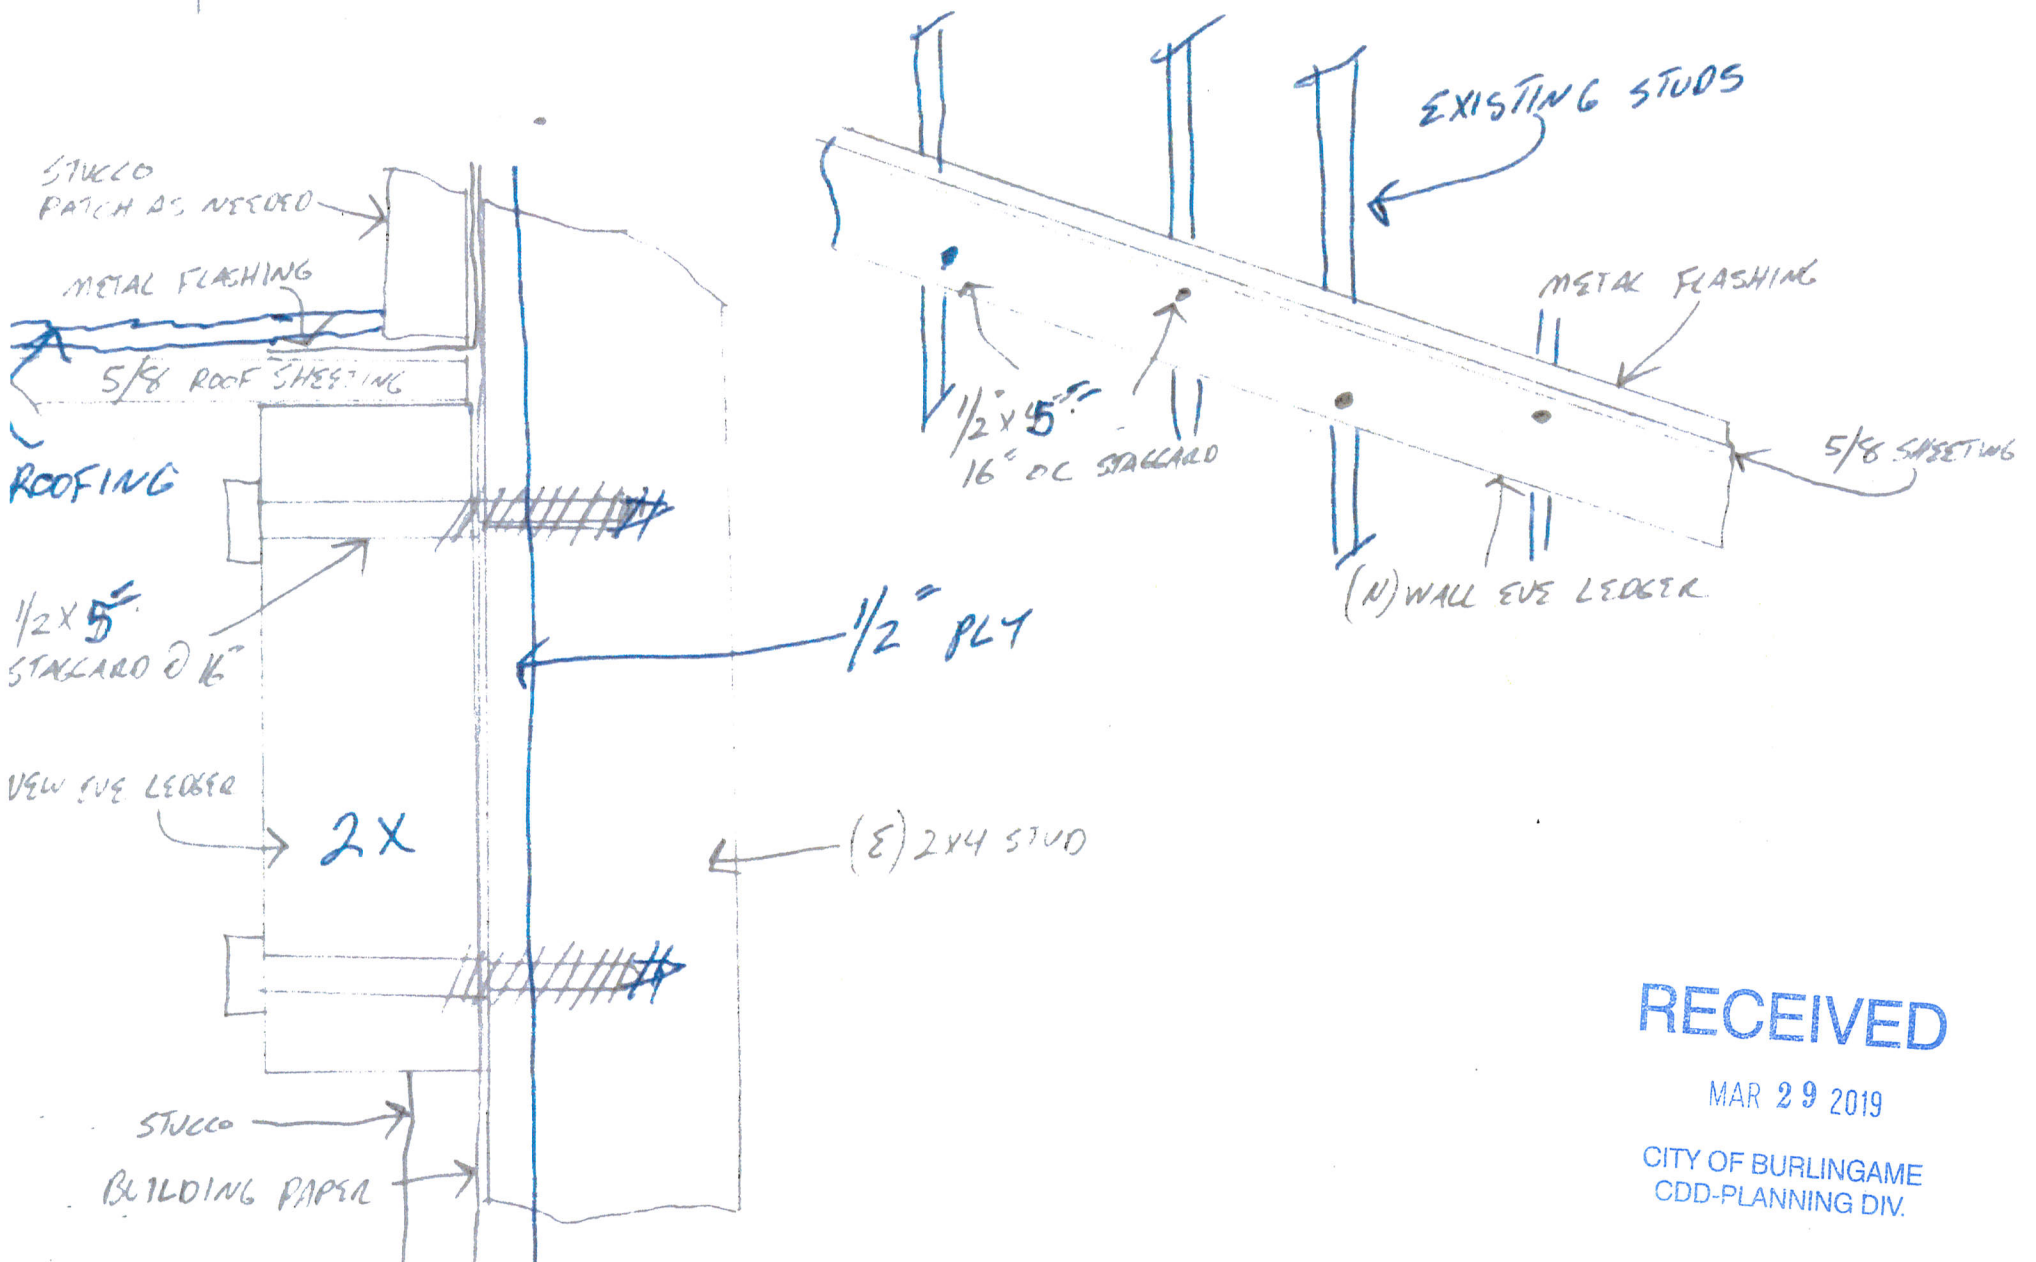 STUCCO
PATCH AS NEEDED
METAL FLASHING
5/8 ROOF SHEETING
ROOFING
1/2 x 5"
STAGGARD @ 16"
NEW EVE LEDGER
2X
STUCCO
BUILDING PAPER
1/2" PLY
(E) 2X4 STUD
EXISTING STUDS
METAL FLASHING
1/2" x 5"
16" OC STAGGARD
5/8 SHEETING
(N) WALL EVE LEDGER
RECEIVED
MAR 29 2019
CITY OF BURLINGAME
CDD-PLANNING DIV.